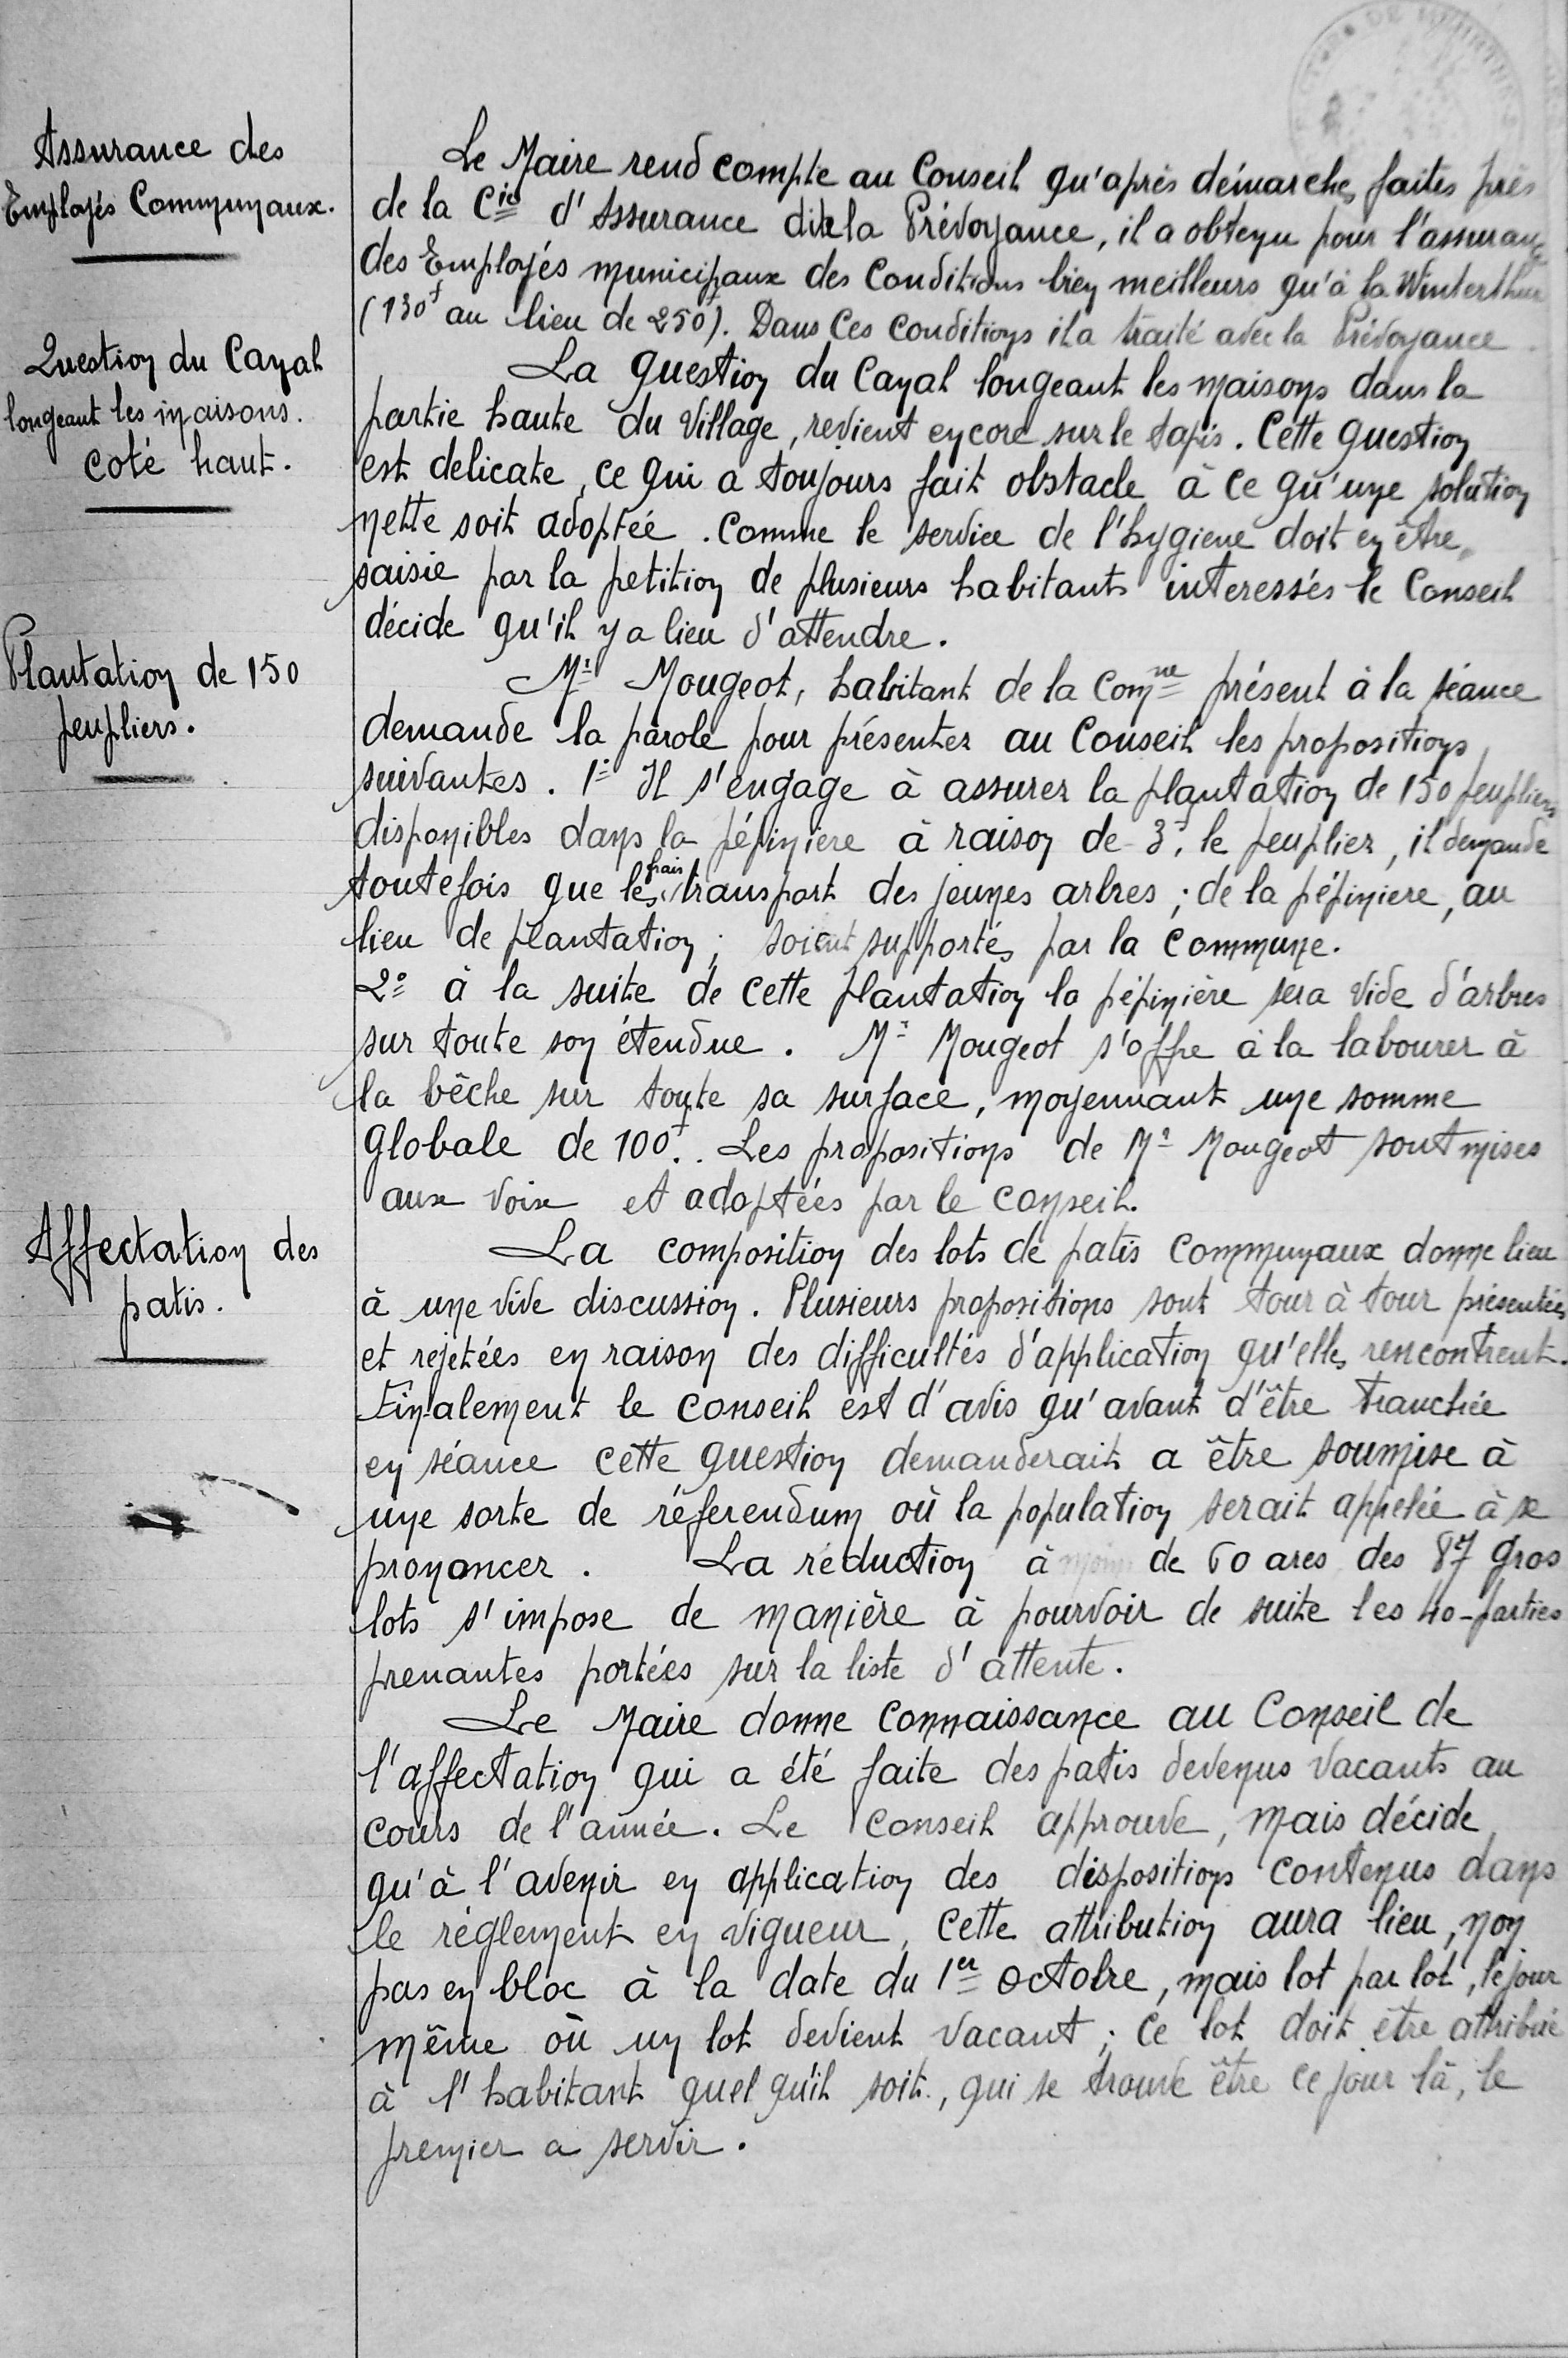 Assurance des
Employés Communaux.
Le Maire rend compte au Conseil qu'après démarches faites près
de la Cie d'Assurance dite la Prévoyance, il a obtenu pour l'assurance
des Employés municipaux des Conditions bien meilleurs qu'à la Winterthur
(130f au lieu de 250f). Dans ces conditions il a traité avec la Prévoyance.
Question du Canal
longeant les maisons.
coté haut.
La question du Canal longeant les maisons dans la
partie haute du Village, revient encore sur le tapis. Cette question
est delicate, ce qui a toujours fait obstacle à ce qu'une solution
nette soit adoptée. Comme le service de l'hygiene doit en être
saisie par la petition de plusieurs habitants interessés le Conseil
décide qu'il y a lieu d'attendre.
Plantation de 150
peupliers.
Mr Mougeot, habitant de la Comne présent à la séance
demande la parole pour présenter au Conseil les propositions
suivantes. 1° Il s'engage à assurer la plantation de 150 peupliers
disponibles dans la pépiniere à raison de 3f. le peuplier, il demande
toutefois que les frais transport des jeunes arbres ; de la pépiniere, au
lieu de plantation ; soient supportés par la Commune.
2° à la suite de cette plantation la pépinière sera vide d'arbres
sur toute son étendue. Mr Mougeot s'offre à la labourer à
la bêche sur toute sa surface, moyennant une somme
globale de 100f. Les propositions de Mr Mougeot sont mises
aux voix et adoptées par le conseil.
Affectation des
patis.
La composition des lots de patis communaux donne lieu
à une vive discussion. Plusieurs propositions sont tour à tour présentées
et rejetées en raison des difficultés d'application qu'elles rencontrent.
Finalement le conseil est d'avis qu'avant d'être tranchée
en séance cette question demanderait a être soumise à
une sorte de réferendum où la population serait appelée à se
prononcer. La réduction à de 60 ares des 87 gros
lots s'impose de manière à pourvoir de suite les 40-parties
prenantes portées sur la liste d'attente.
Le Maire donne connaissance au Conseil de
l'affectation qui a été faite des patis devenus vacants au
cours de l'année. Le Conseil approuve, mais décide
qu'à l'avenir en application des dispositions contenus dans
le réglement en vigueur, cette attribution aura lieu, non
pas en bloc à la date du 1er octobre, mais lot par lot, le jour
même où un lot devient vacant ; ce lot doit être attribué
à l'habitant quel qu'il soit, qui se trouve être ce jour là, le
premier a servir.